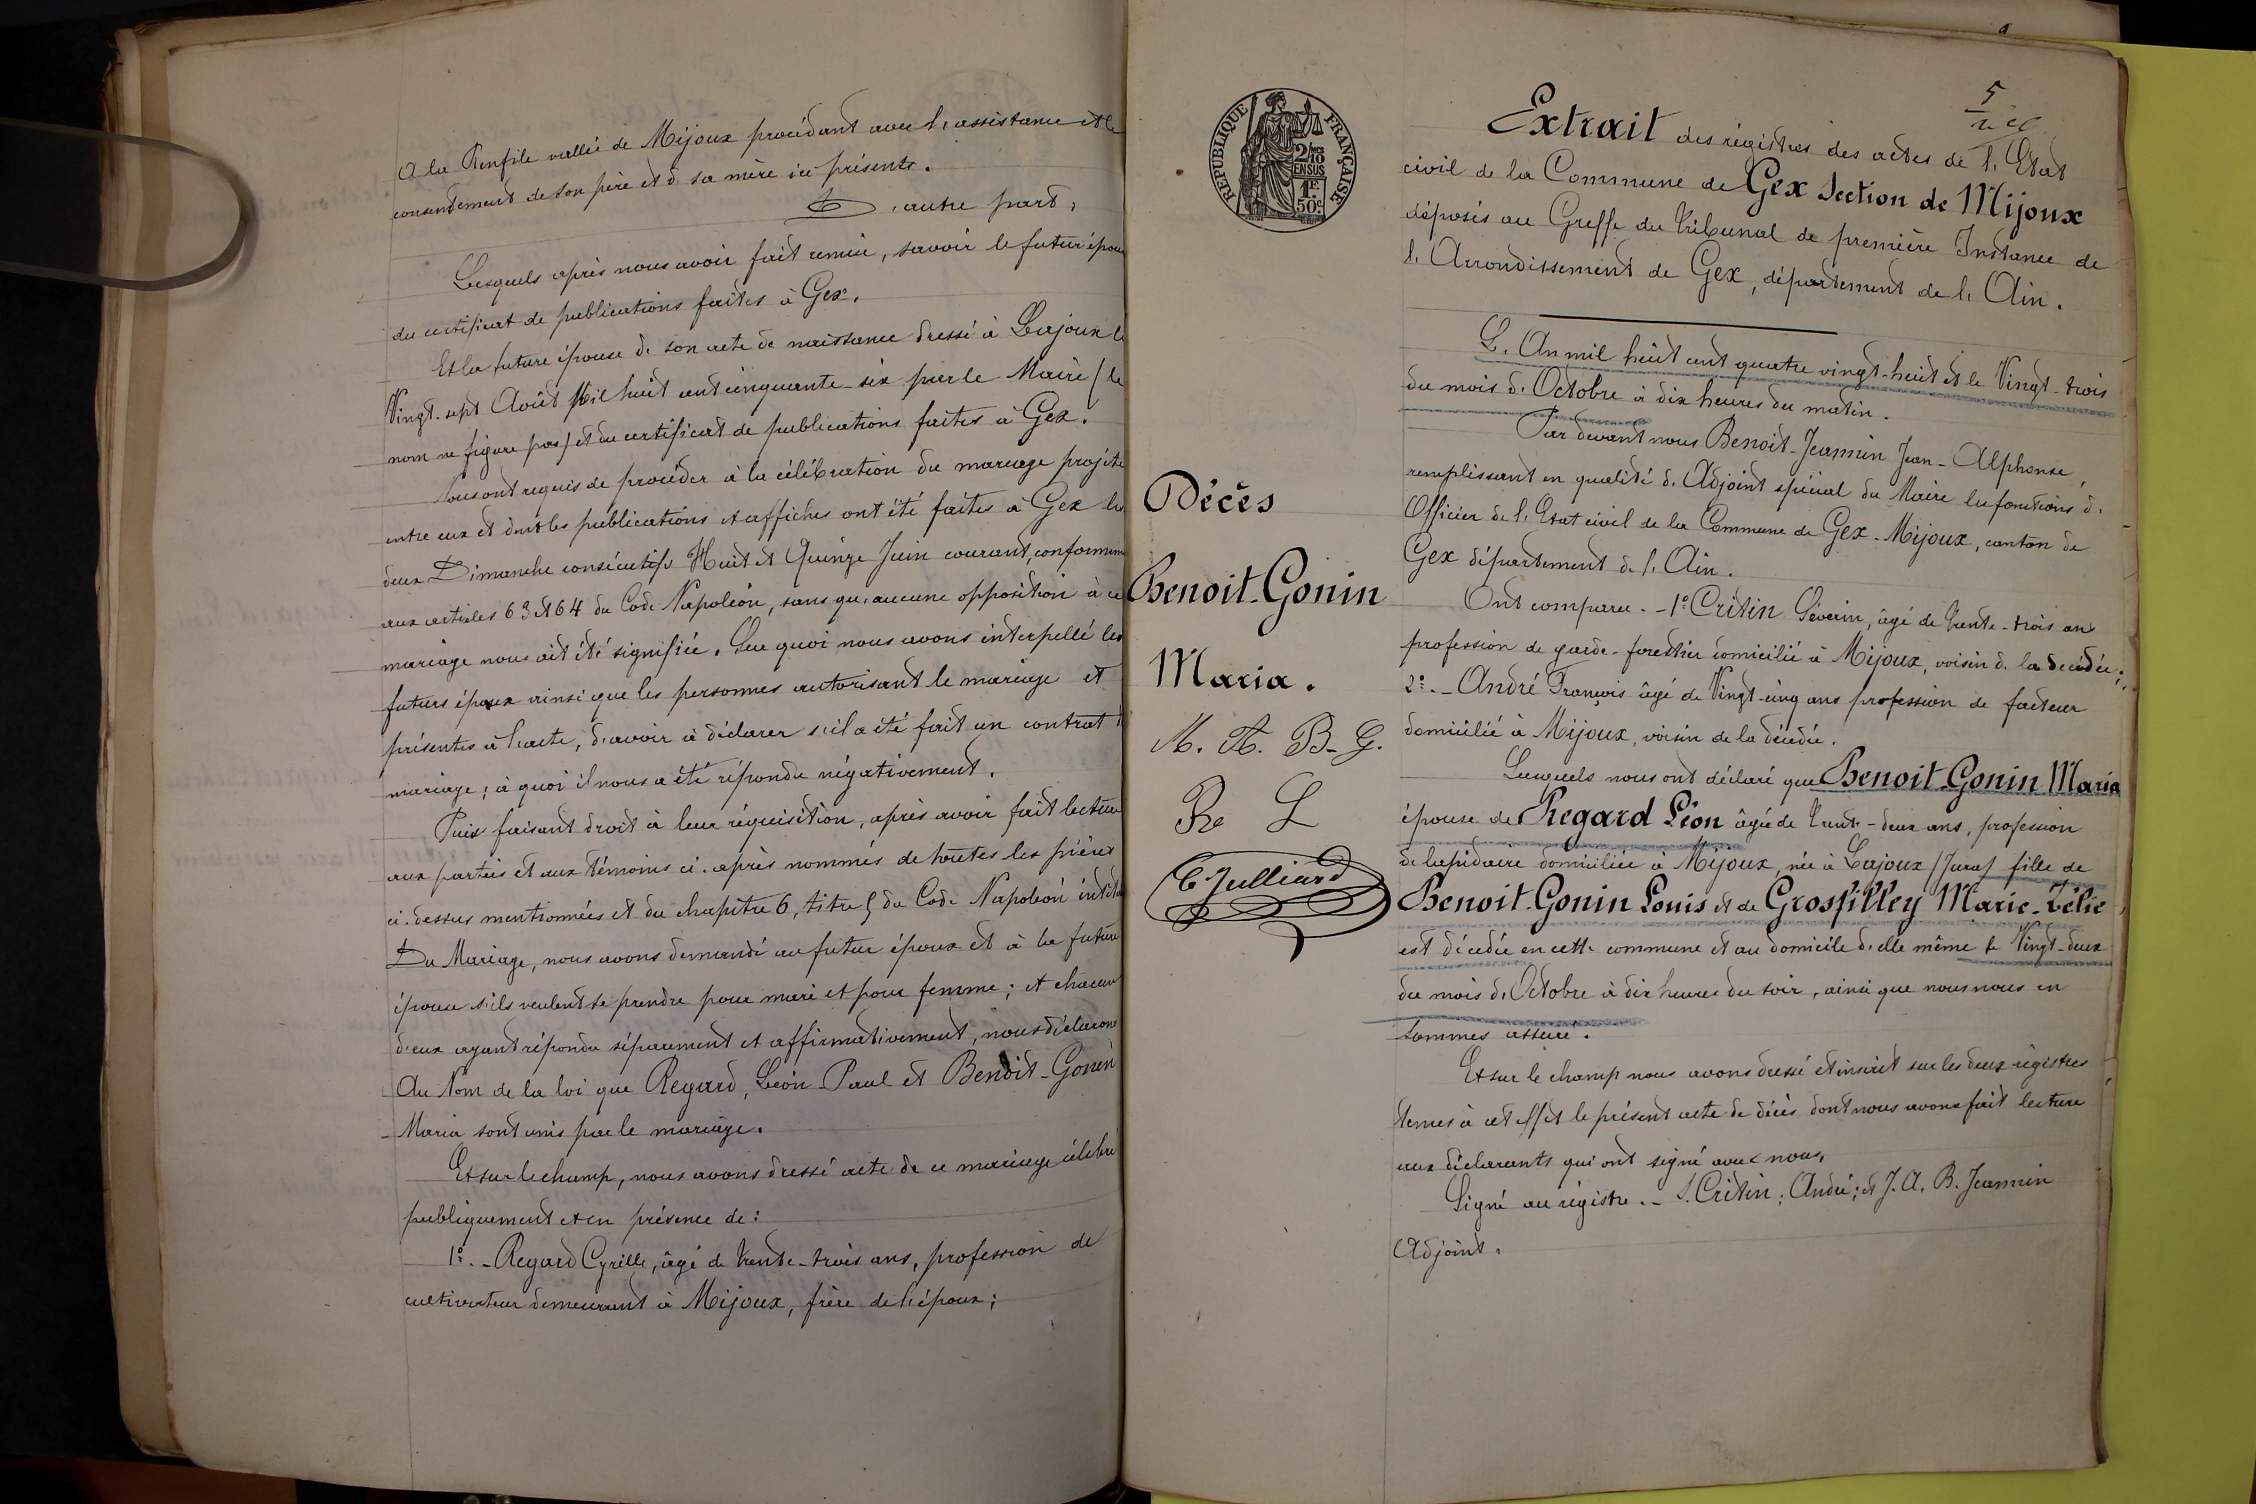 A la Renfile vallée de Mijoux procédant avec l'assistance et le
consentement de son père et de sa mère ici présents.
D'autre part,
Lesquels après nous avoir fait remise, savoir le futur époux
du certificat de publications faites à Gex.
Et la future épouse de son acte de naissance dressé à Lajoux le
Vingt-sept Août Mil huit cent cinquante-six par le Maire (le
nom ne figure pas) et du certificat de publications faites à Gex.
Nous ont requis de procéder à la célébration du mariage projeté
entre eux et dont les publications et affiches ont été faites à Gex les
deux Dimanche consécutifs Huit et Quinze Juin courant, conformém
aux articles 63 et 64 du Code Napoléon, sans qu'aucune opposition à ce
mariage nous ait été signifiée. Sur quoi nous avons interpellé les
futurs époux ainsi que les personnes autorisant le mariage et
présentes à l'acte, d'avoir à déclarer s'il a été fait un contrat d
mariage; à quoi il nous a été répondu négativement.
Puis faisant droit à leur réquisition, après avoir fait lecture
aux parties et aux témoins ci-après nommés de toutes les pièces
ci-dessus mentionnées et du chapitre 6, titre 5 du Code Napoléon intitulé
Du Mariage, nous avons demandé au futur époux et à la future
épouse s'ils veulent se prendre pour mari et pour femme; et chacun
d'eux ayant répondu séparément et affirmativement, nous déclarons
Au Nom de la loi que Regard, Léon-Paul et Benoit-Gonin
Maria sont unis par le mariage.
Et sur le champ, nous avons dressé acte de ce mariage célébré
publiquement et en présence de:
1º.- Regard Cyrille, âgé de trente-trois ans, profession de
cultivateur demeurant à Mijoux, frère de l'époux;
RÉPUBLIQUE FRANÇAISE
2/10 EN SUS
1F. 50c.
Décès
Benoit-Gonin
Maria.
M. A. B-G.
Re L
C Julliard
5
Extrait des régistres des actes de l'Etat
civil de la Commune de Gex Section de Mijoux
déposés au Greffe du Tribunal de première Instance de
l'Arrondissement de Gex, département de l'Ain.
L'An mil huit cent quatre vingt-huit et le Vingt-trois
du mois d'Octobre à dix heures du matin.
Par devant nous Benoit-Jeannin Jean-Alphonse,
remplissant en qualité d'Adjoint spécial du Maire les fonctions d'
Officier de l'Etat civil de la Commune de Gex-Mijoux, canton de
Gex département de l'Ain.
Ont comparu.- 1º Critin Séverin, âgé de trente-trois ans
profession de garde-forestier domicilié à Mijoux, voisin de la décédée;
2º.- André François âgé de Vingt-cinq ans profession de facteur
domicilié à Mijoux, voisin de la décédée.
Lesquels nous ont déclaré que Benoit-Gonin Maria
épouse de Regard Léon âgée de trente-deux ans, profession
de lapidaire domiciliée à Mijoux, née à Lajoux (Jura) fille de
Benoit-Gonin Louis et de Grosfilley Marie-Zélie
est décédée en cette commune et au domicile d'elle même le Vingt-deux
du mois d'Octobre à dix heures du soir, ainsi que nous nous en
sommes assuré.
Et sur le champ nous avons dressé et inscrit sur les deux régistres
tenus à cet effet le présent acte de décès dont nous avons fait lecture
aux déclarants qui ont signé avec nous,
Signé au régistre.- S. Critin; André; et J. A. B. Jeannin
Adjoint.